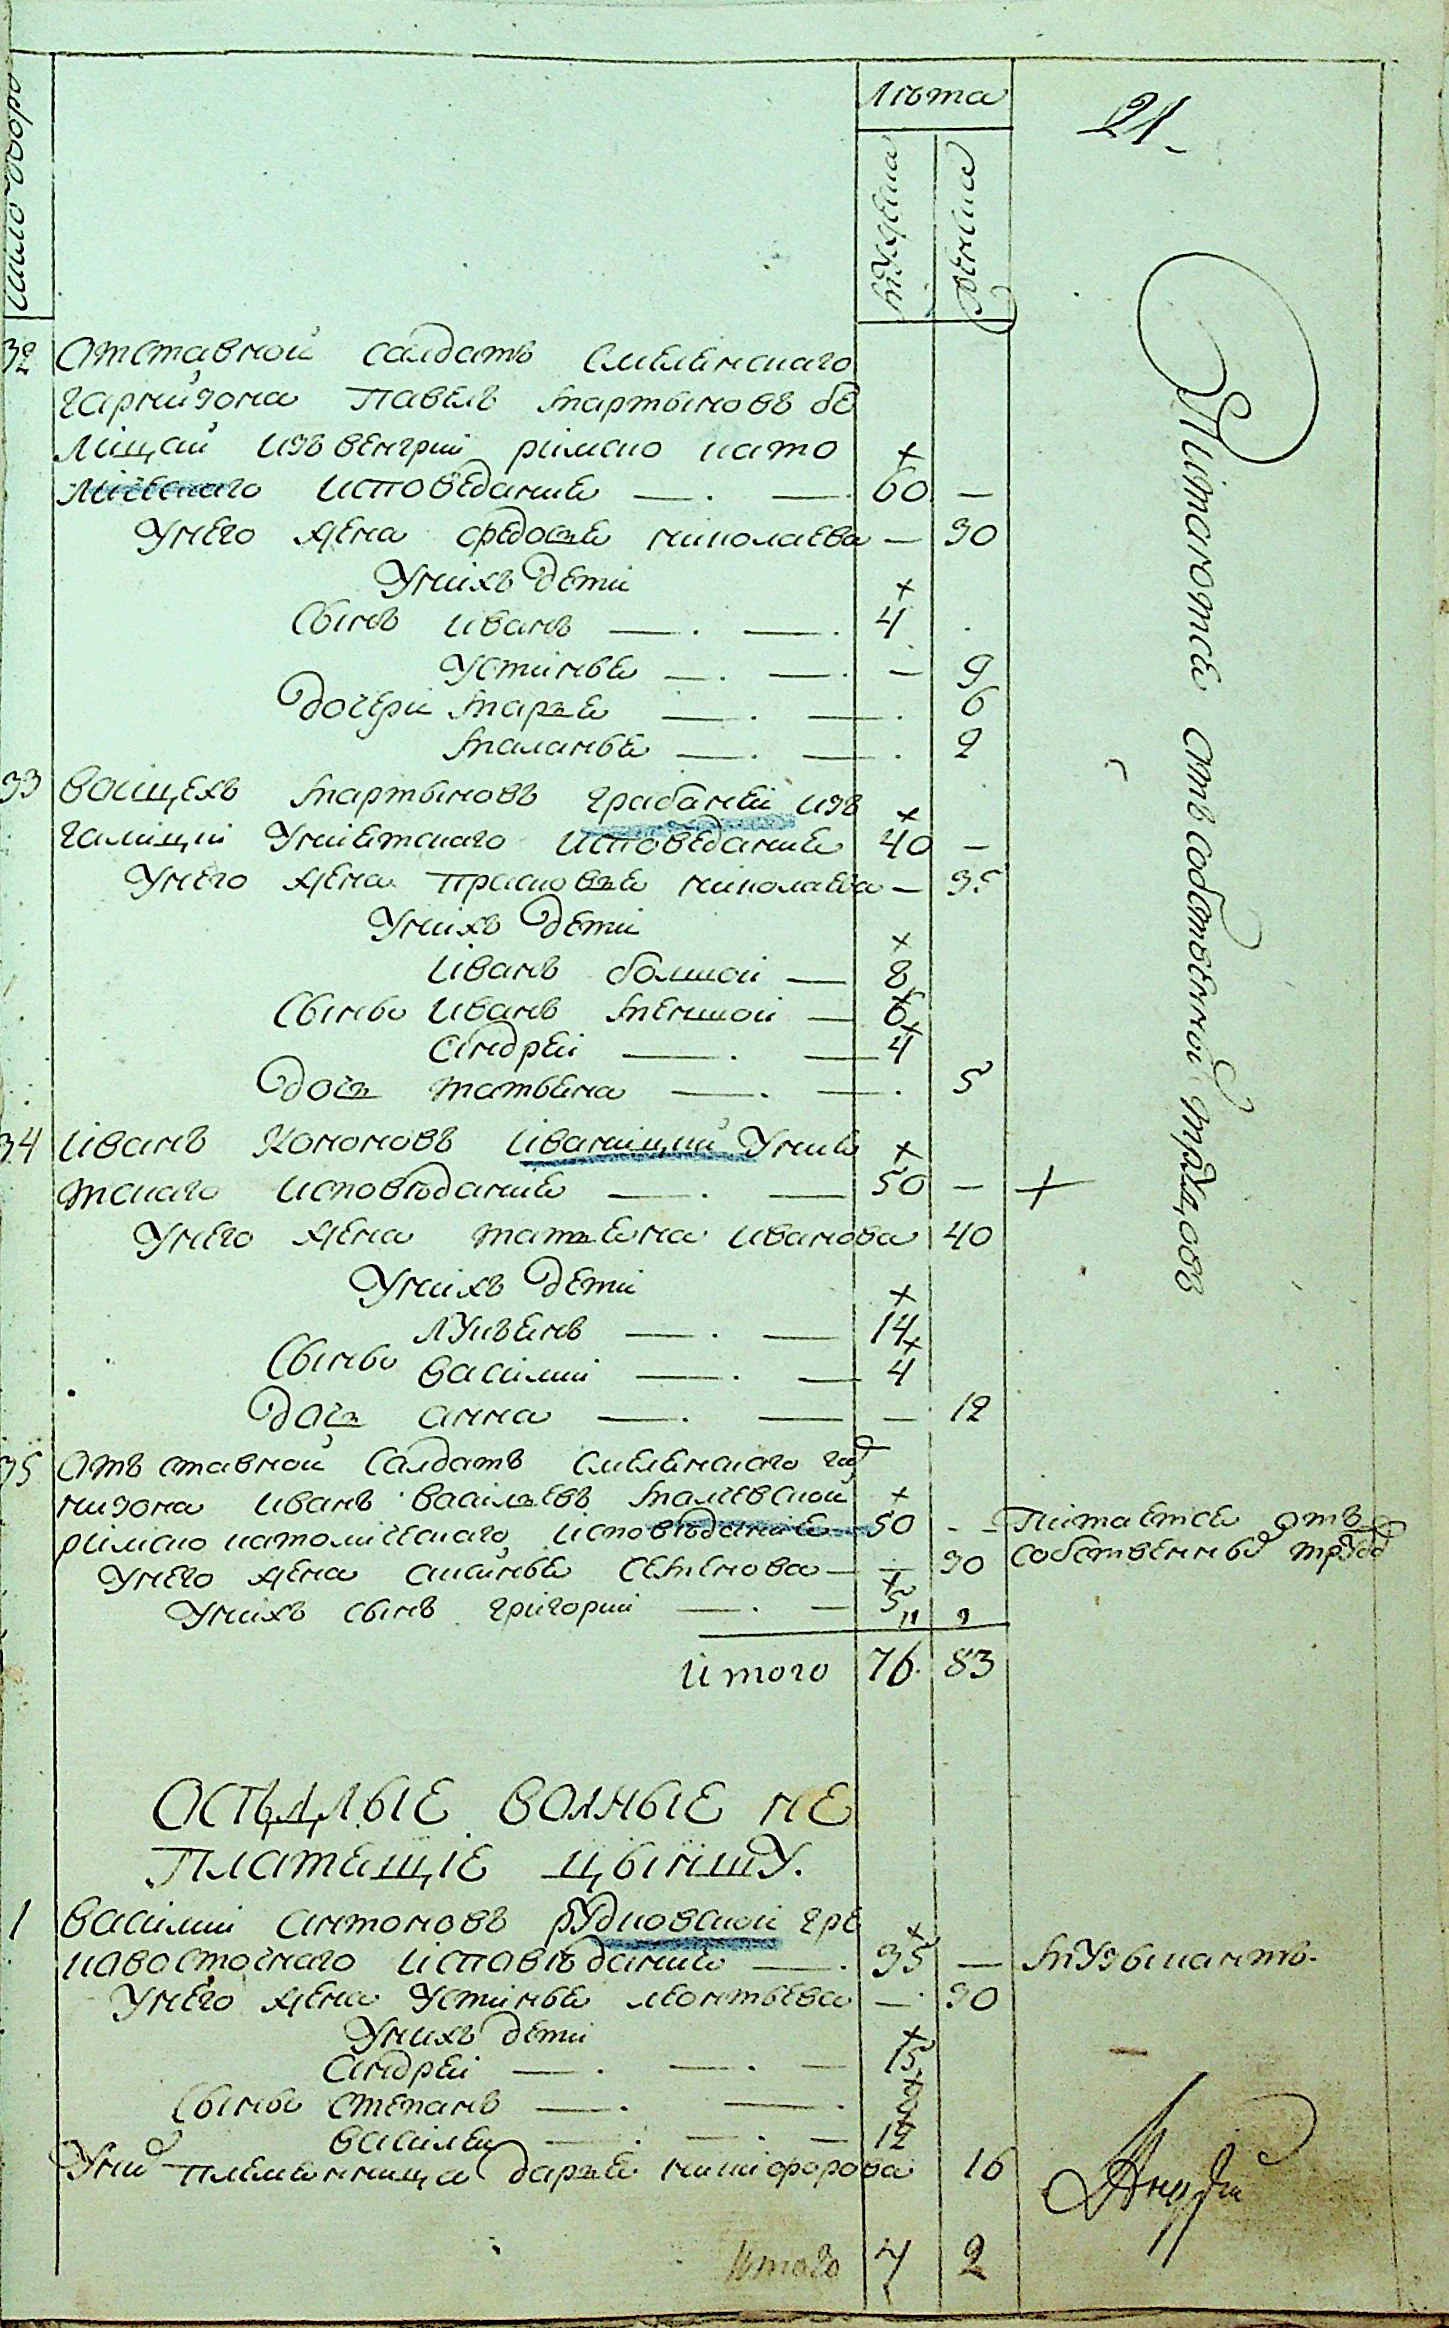 число дворо
Лѣта
мужеска
женска
21
32 Отставной салдатъ Смелянскаго
гарнизона Павелъ Мартыновъ бѣ
лицкий изъ венгрии римско като
лическаго исповедание — . — . 60 —
У него жена Федосье николаева — 30
У нихъ дети
Сынъ иванъ — . — . 4
Устинье — . — . — 9
Дочери Марье — . — . 6
Маланье — . — . 2
33 Войцехъ Мартыновъ грабаней изъ
галиции Униетскаго исповедание 40 —
У него жена Прасковье николаева — 35
У нихъ дети
Иванъ болшой — 8
Сыны Иванъ меншой — 6
Андрей — . — 4
дочь татьяна — . — . 5
34 Иванъ Кононовъ Иваницкий Униѣ
тскаго исповѣдание — . — 50 —
У него жена татьяна иванова 40
У нихъ дети
Лукьянъ — . — 14
Сыны Василии — . — 4
дочь анна — . — — 12
35 Отъставной Салдатъ Смелянскаго гар
низона Иванъ Васильевъ Малевской
римско католическаго исповѣдание — 50 — Питается отъ
У него жена аксинье Семенова — — 30 собственны трудо
У нихъ сынъ григорий — . — 5
Итого 76 83
Питаются отъ собственной трудовъ
ОСѢДЛЫЕ ВОЛНЫЕ НЕ
ПЛАТЯЩИЕ ЦЫНШУ.
1 Василии антоновъ рудковской гре
ковосточнаго исповѣдание — . 35 — музыкантъ.
У него жена Устинье леонтьева — 30
У нихъ дети
Андрей — . — . — 15
Сыны Степанъ — . — . 9
Василеи — . — . — 12
У них племянница дарье никифорова 16
Итого 4 2